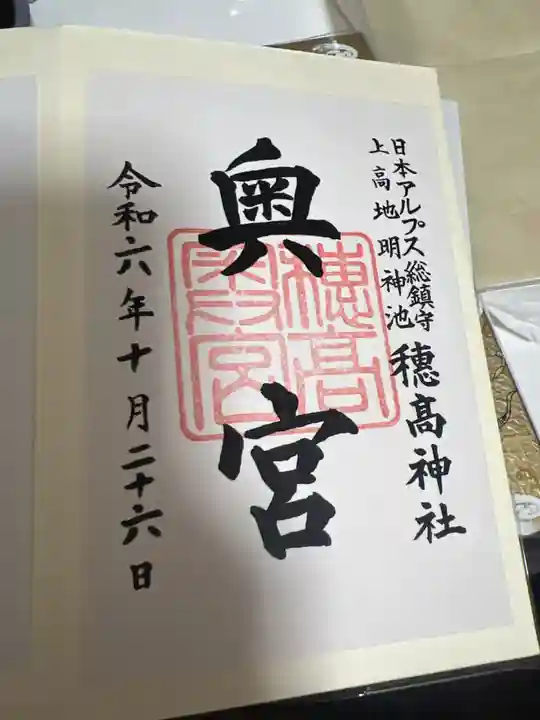 日本アルプス総鎮守
上高地明神池
穂高神社
奥宮
穂高
奥宮
令和六年十月二十六日